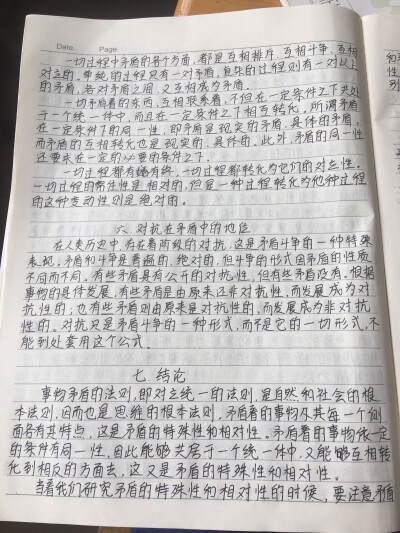 Date. Page.
一切过程中矛盾的各个方面，都是互相排斥、互相斗争、互相
对立的。单纯的过程只有一对矛盾，复杂的过程则有一对以上
的矛盾，各对矛盾之间，又互相成为矛盾。
一切矛盾着的东西，互相联系着，不但在一定条件之下共处
于一个统一体中，而且在一定条件之下互相转化，所谓矛盾
在一定条件下的同一性，即矛盾是现实的矛盾，具体的矛盾，
而矛盾的互相转化也是现实的、具体的。此外，矛盾的同一性
还要求在一定的必要的条件之下。
一切过程都有始有终，一切过程都转化为它们的对立性。
一切过程的常住性是相对的，但是一种过程转化为他种过程
的这种变动性则是绝对的。
六. 对抗在矛盾中的地位
在人类历史中，存在着阶级的对抗，这是矛盾斗争的一种特殊
表现，矛盾和斗争是普遍的、绝对的，但斗争的形式因矛盾的性质
不同而不同。有些矛盾具有公开的对抗性，但有些矛盾没有。根据
事物的具体发展，有些矛盾是由原来还非对抗性，而发展成为对
抗性的；也有些矛盾则由原来是对抗性的，而发展成为非对抗
性的。对抗只是矛盾斗争的一种形式，而不是它的一切形式，不
能到处套用这个公式。
七. 结论
事物矛盾的法则，即对立统一的法则，是自然和社会的根
本法则，因而也是思维的根本法则。矛盾着的事物及其每一个侧
面各有其特点，这是矛盾的特殊性和相对性。矛盾着的事物依一定
的条件有同一性，因此能够共居于一个统一体中，又能够互相转
化到相反的方面去，这又是矛盾的特殊性和相对性。
当着我们研究矛盾的特殊性和相对性的时候，要注意矛盾